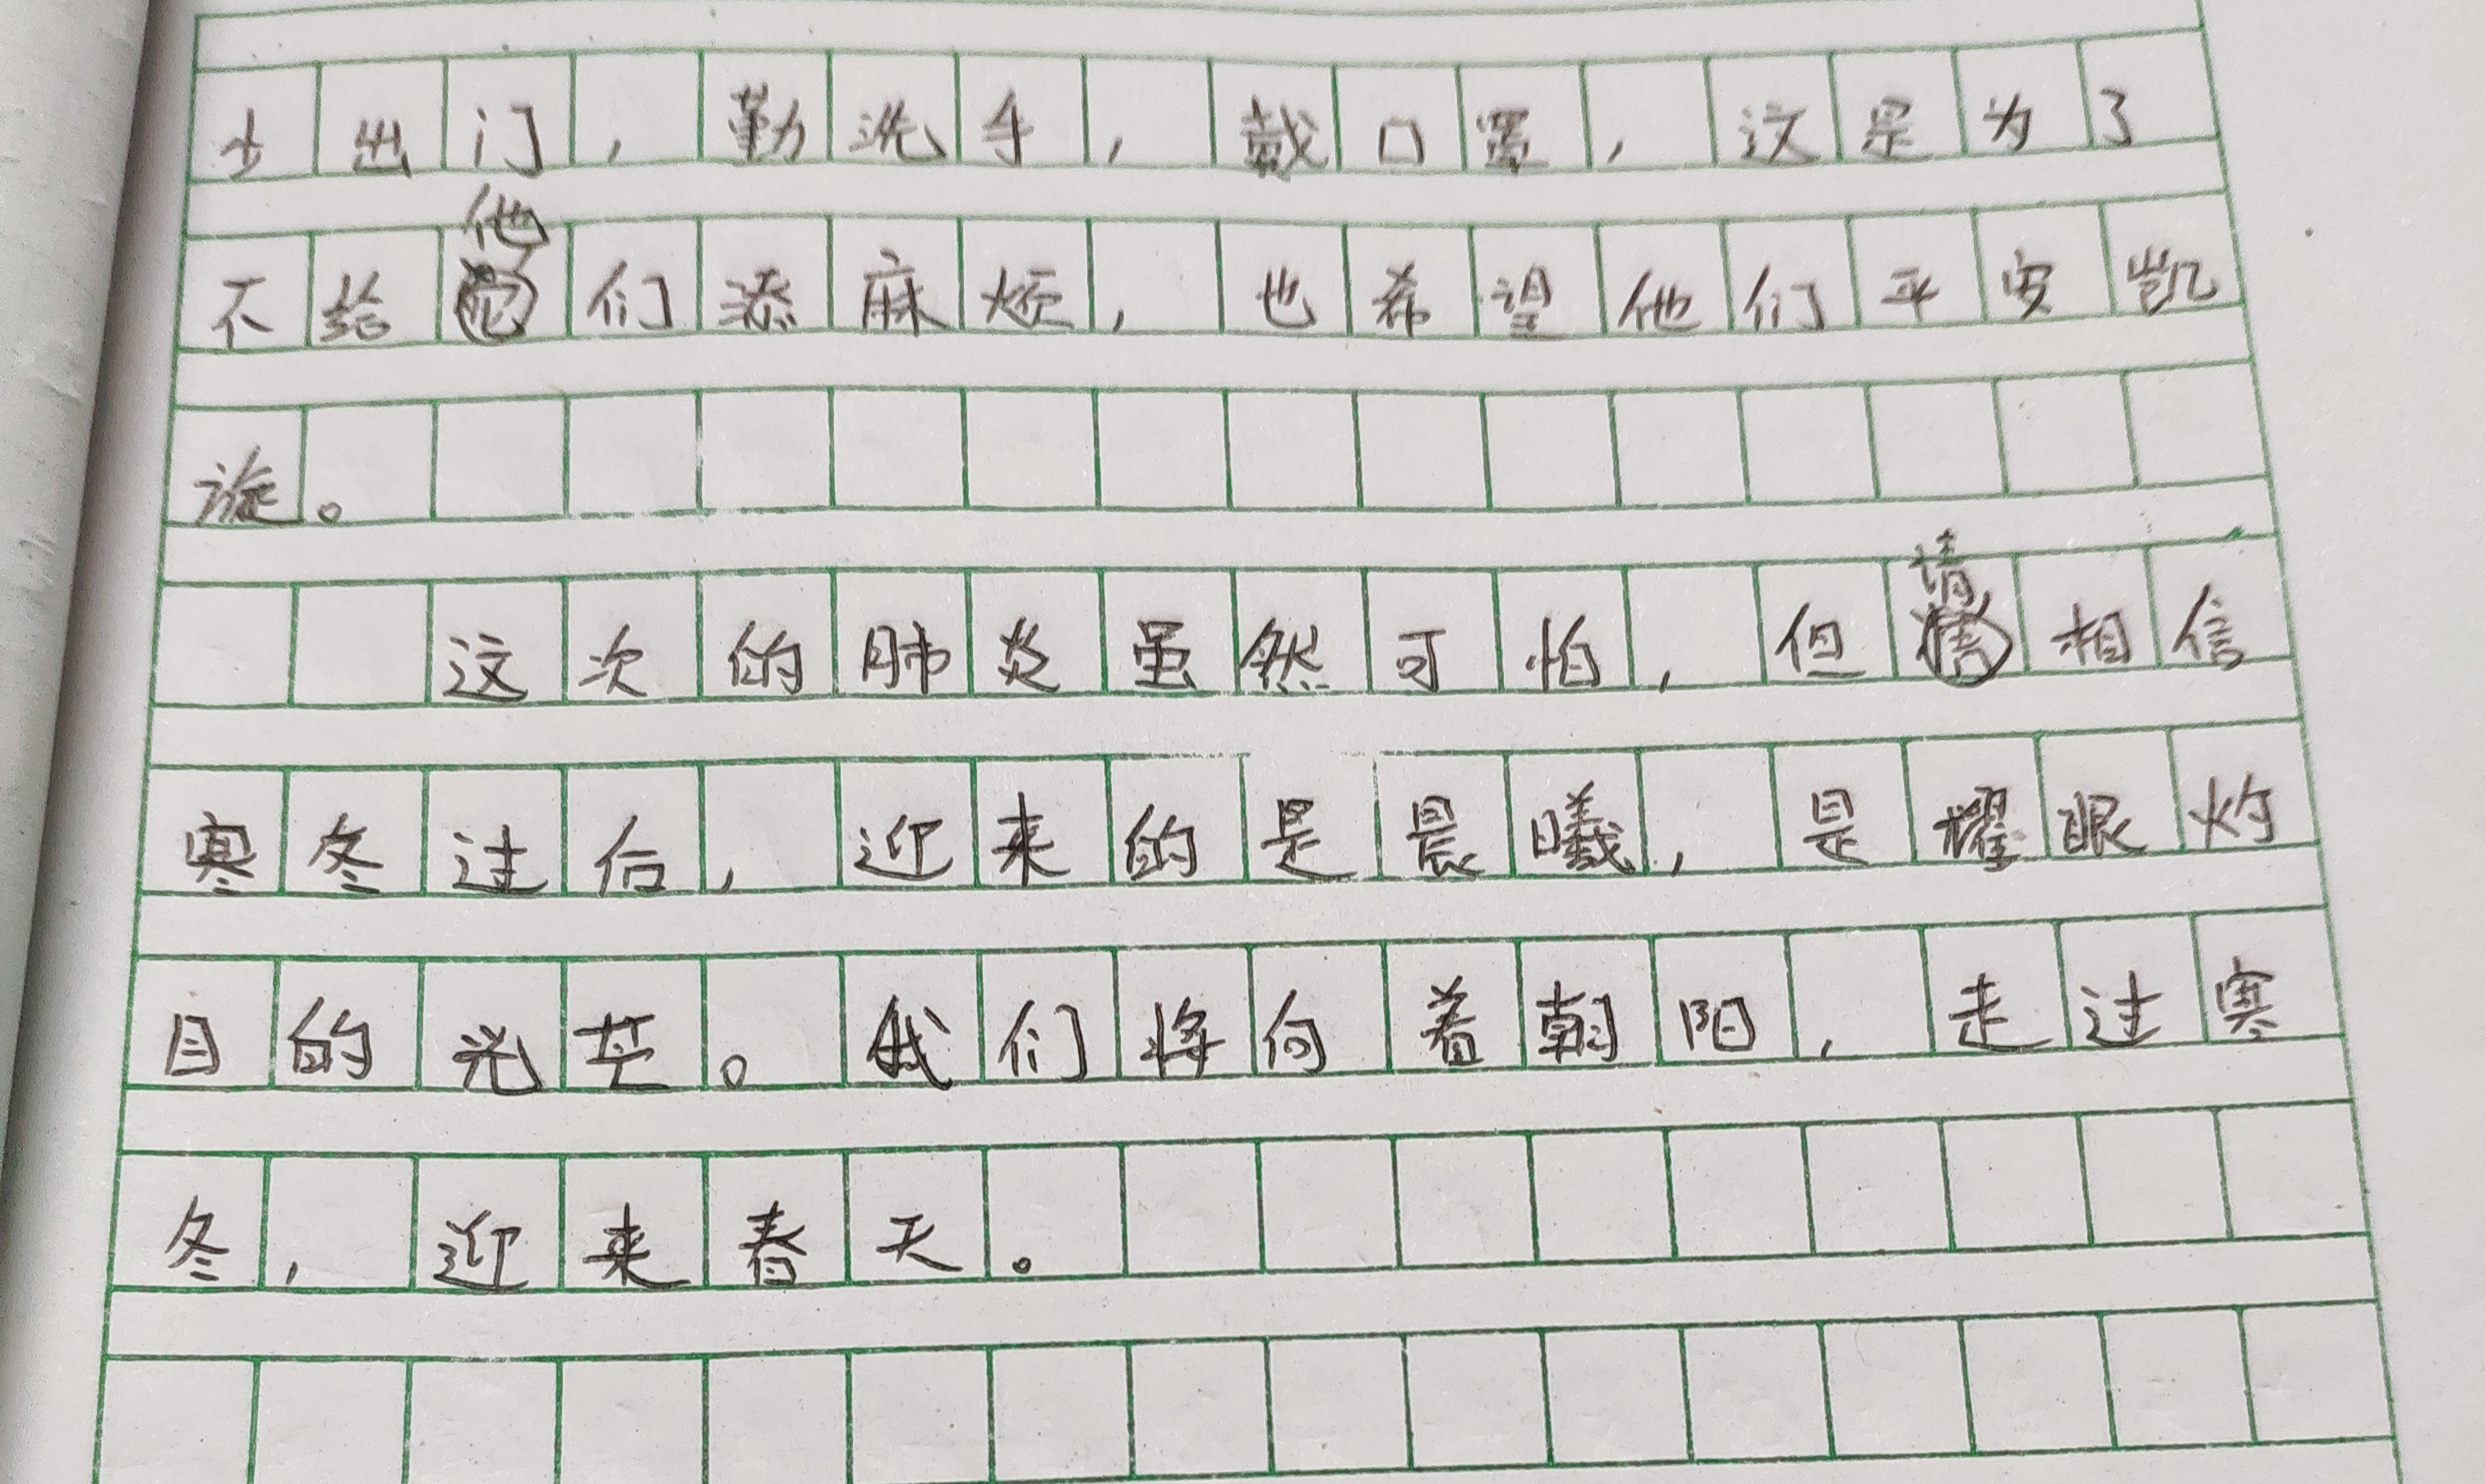 少出门，勤洗手，戴口罩，这是为了
不给他们添麻烦，也希望他们平安凯
旋。
这次的肺炎虽然可怕，但请相信
寒冬过后，迎来的是晨曦，是耀眼灼
目的光芒。我们将向着朝阳，走过寒
冬，迎来春天。